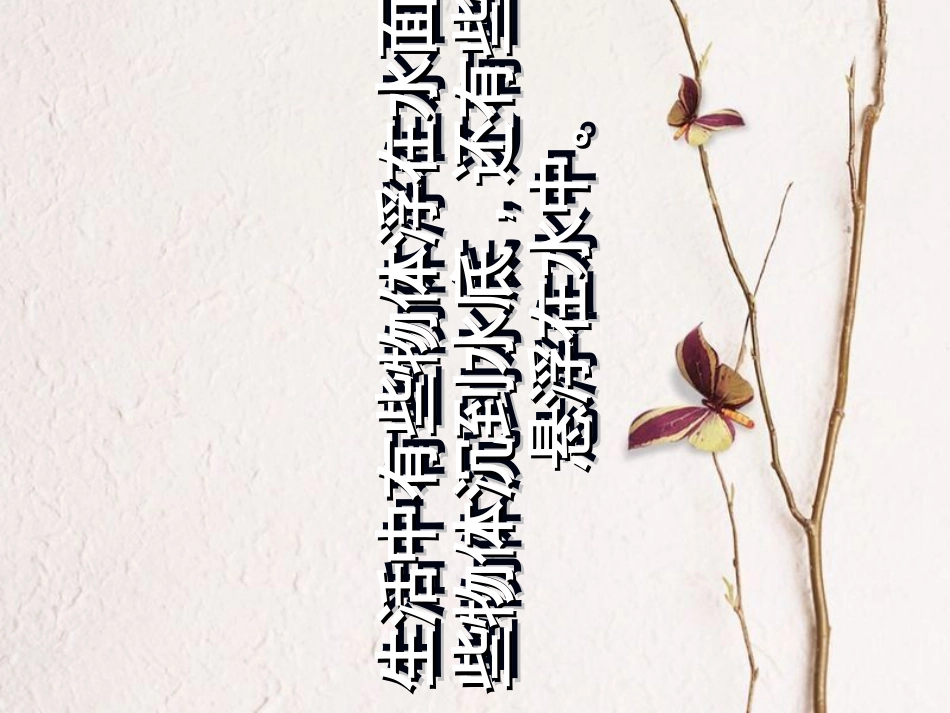 生活中有些物体浮在水面
些物体沉到水底，还有些
悬浮在水中。